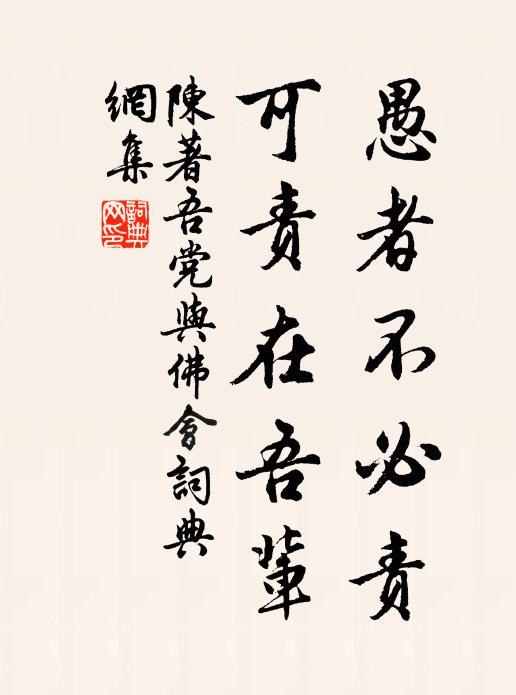 愚者不必责
可责在吾輩
陳著吾党與佛會詞典
網集
詞典網印